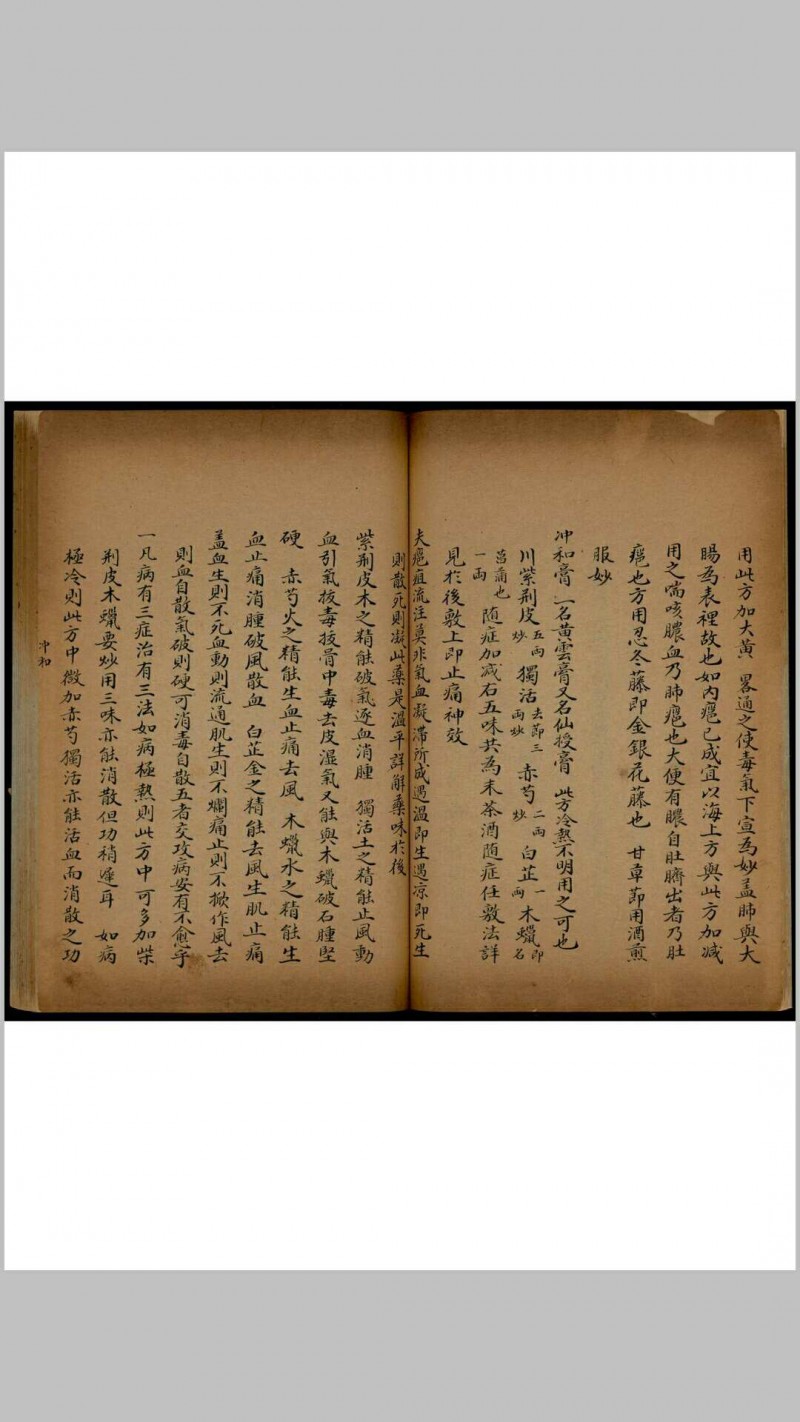 用此方加大黃畧通之使毒氣下宣為妙盖肺與大
腸為表裡故也如內癰已成宜以海上方與此方加減
用之喘咳膿血乃肺癰也大便有膿自肚臍出者乃肚
癰也方用忍冬藤即金銀花藤也 甘草節用酒煎
服妙
冲和膏 一名黃雲膏又名仙授膏 此方冷熱不明用之可也
川紫荆皮五兩炒 獨活去節三兩炒 赤芍二兩炒 白芷一兩 木蠟即名
菖蒲也一兩 随症加减右五味共為末茶酒随症任敷法詳
見於後敷上即止痛神效
夫癰疽流注莫非氣血凝滯所成遇温即生遇凉即死生
則散死則凝此藥是温平詳解藥味於後
紫荆皮木之精能破氣逐血消腫 獨活土之精能止風動
血引氣拔毒拔骨中毒去皮濕氣又能與木蠟破石腫堅
硬 赤芍火之精能生血止痛去風 木蠟水之精能生
血止痛消腫破風散血 白芷金之精能去風生肌止痛
盖血生則不死血動則流通肌生則不爛痛止則不掀作風去
則血自散氣破則硬可消毒自散五者交攻病安有不愈乎
一凡病有三症治有三法如病極熱則此方中可多加紫
荆皮木蠟要炒用三味亦能消散但功稍遲耳 如病
極冷則此方中微加赤芍獨活亦能活血而消散之功
冲和